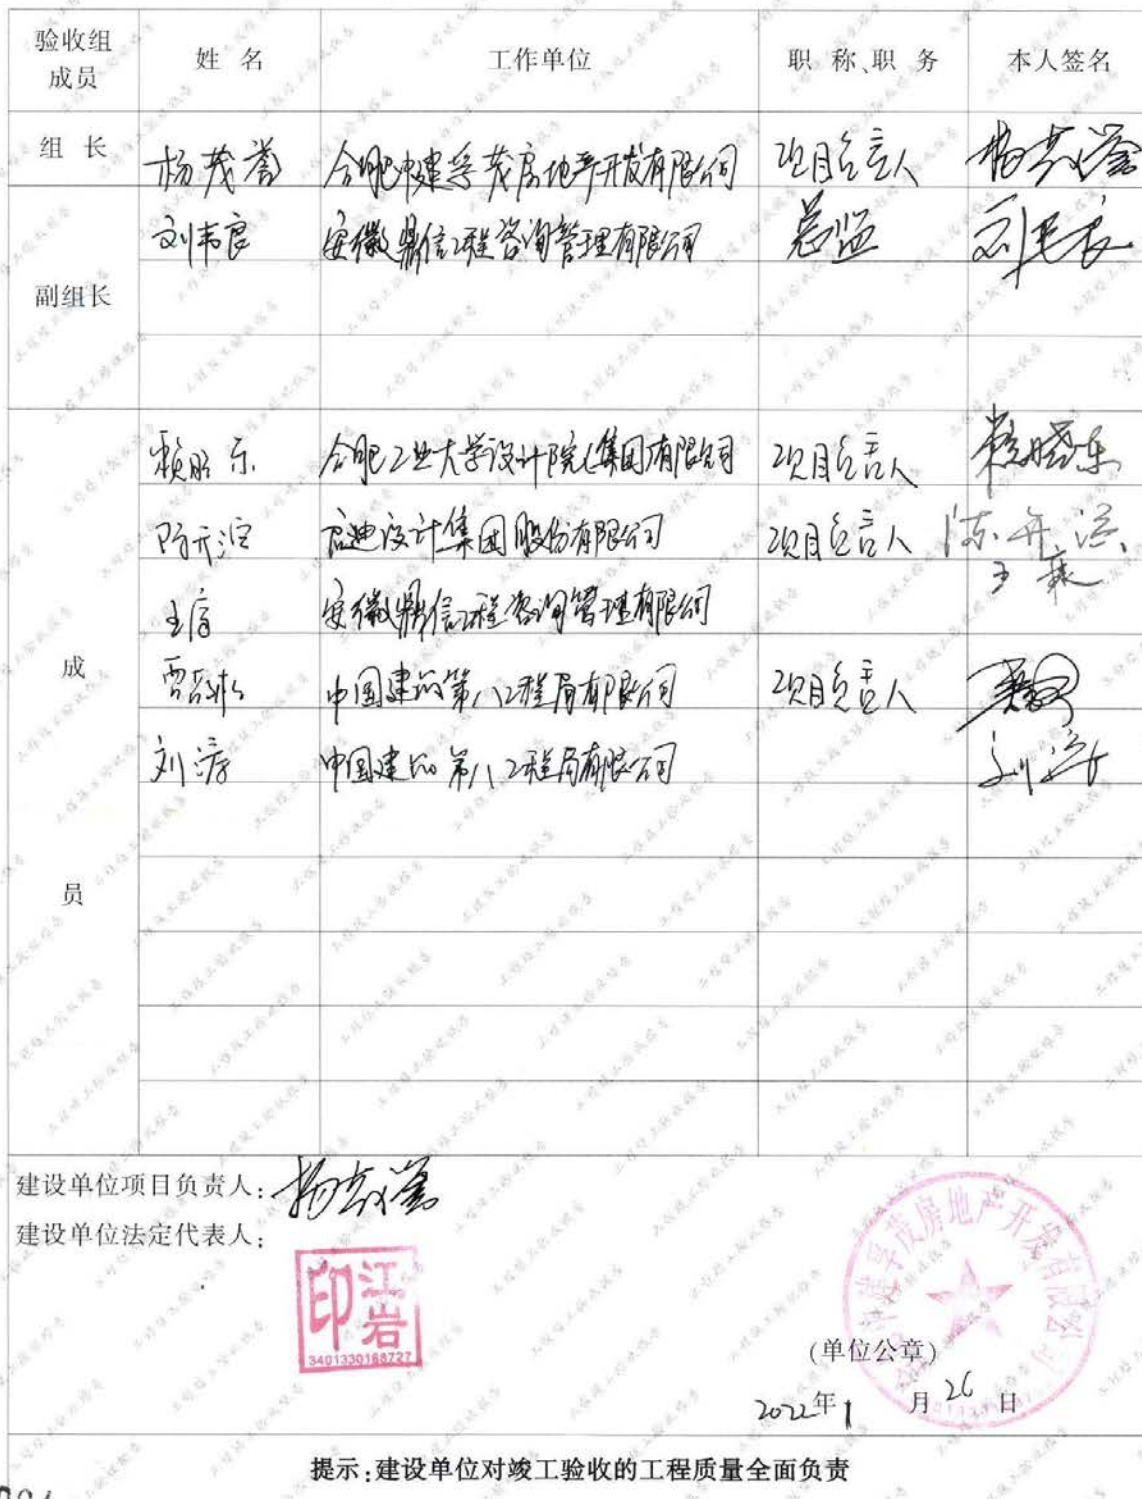 验收组成员 姓 名 工作单位 职 称、职 务 本人签名
组 长 杨茂誉 合肥中建孚茂房地产开发有限公司 项目负责人 杨茂誉
刘韦良 安徽鼎信工程咨询管理有限公司 总监 刘韦良
副组长
合肥工业大学设计院(集团)有限公司 项目负责人
启迪设计集团股份有限公司 项目负责人
安徽鼎信工程咨询管理有限公司
成 中国建筑第八工程局有限公司 项目负责人
中国建筑第八工程局有限公司
员
建设单位项目负责人: 杨茂誉
建设单位法定代表人:
江岩印
3401330168727
房地产开发有限公司
(单位公章)
2022年1月26日
提示:建设单位对竣工验收的工程质量全面负责